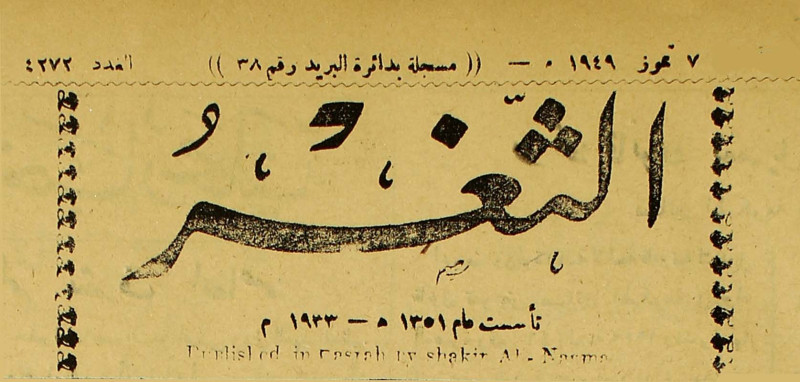 ٧ تموز ١٩٤٩ ٥ — (( مسجلة بدائرة البريد رقم ٣٨ )) العدد ٤٢٧٢
الثَّغْر
تأسست عام ١٣٥١ ه — ١٩٣٣ م
Published in Basrah by shakir AL-Neema